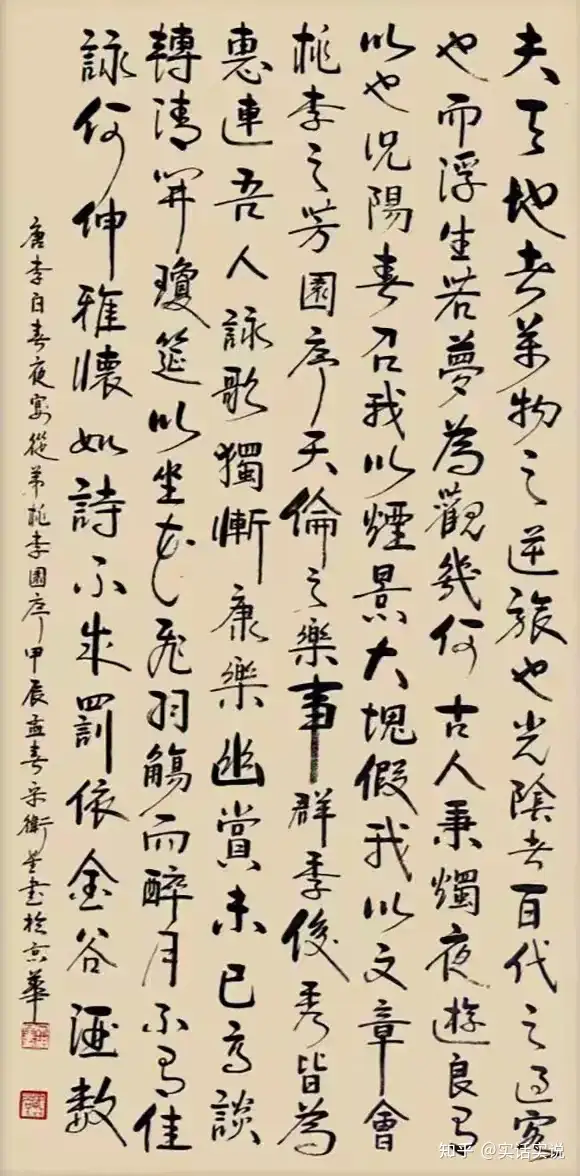 夫天地者萬物之逆旅也光陰者百代之過客
也而浮生若夢為觀幾何古人秉燭夜遊良有
以也況陽春召我以煙景大塊假我以文章會
桃李之芳園序天倫之樂事群季俊秀皆為
惠連吾人詠歌獨慚康樂幽賞未已高談
轉清開瓊筵以坐花飛羽觴而醉月不有佳
詠何伸雅懷如詩不成罰依金谷酒數
唐李白春夜宴從弟桃李園序甲辰孟春宋衛書於京華
知乎 @实话实说